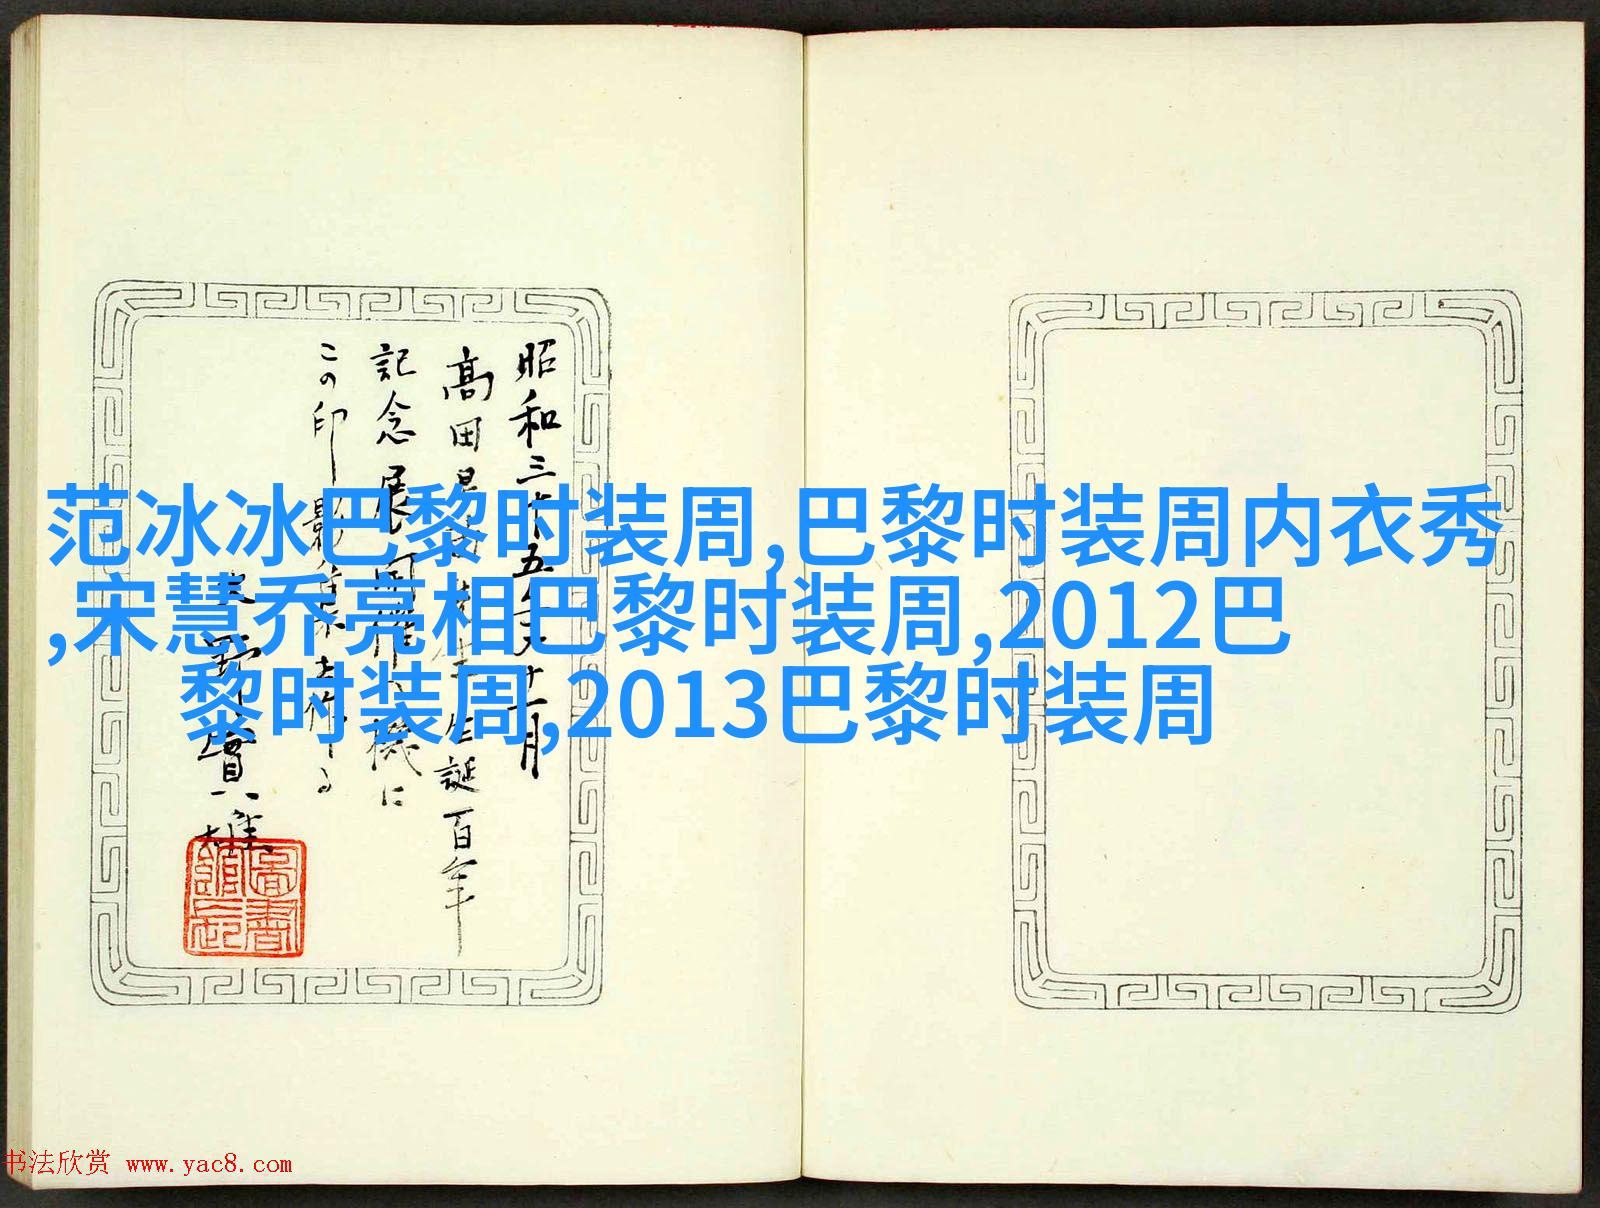 范冰冰巴黎时装周,巴黎时装周内衣秀
,宋慧乔亮相巴黎时装周,2012巴
黎时装周,2013巴黎时装周
昭和三十五年十一月
高田
生誕百年
記念展開催
機に
この印影
圖書
館長
书法欣赏 www.yac8.com